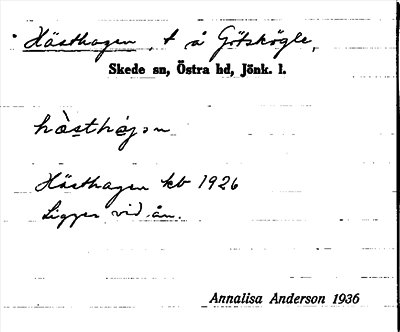 Hästhagen, t å Götskögle,
Skede sn, Östra hd, Jönk. l.
hàsthàgən
Hästhagen kb 1926
Ligger vid ån.
Annalisa Anderson 1936